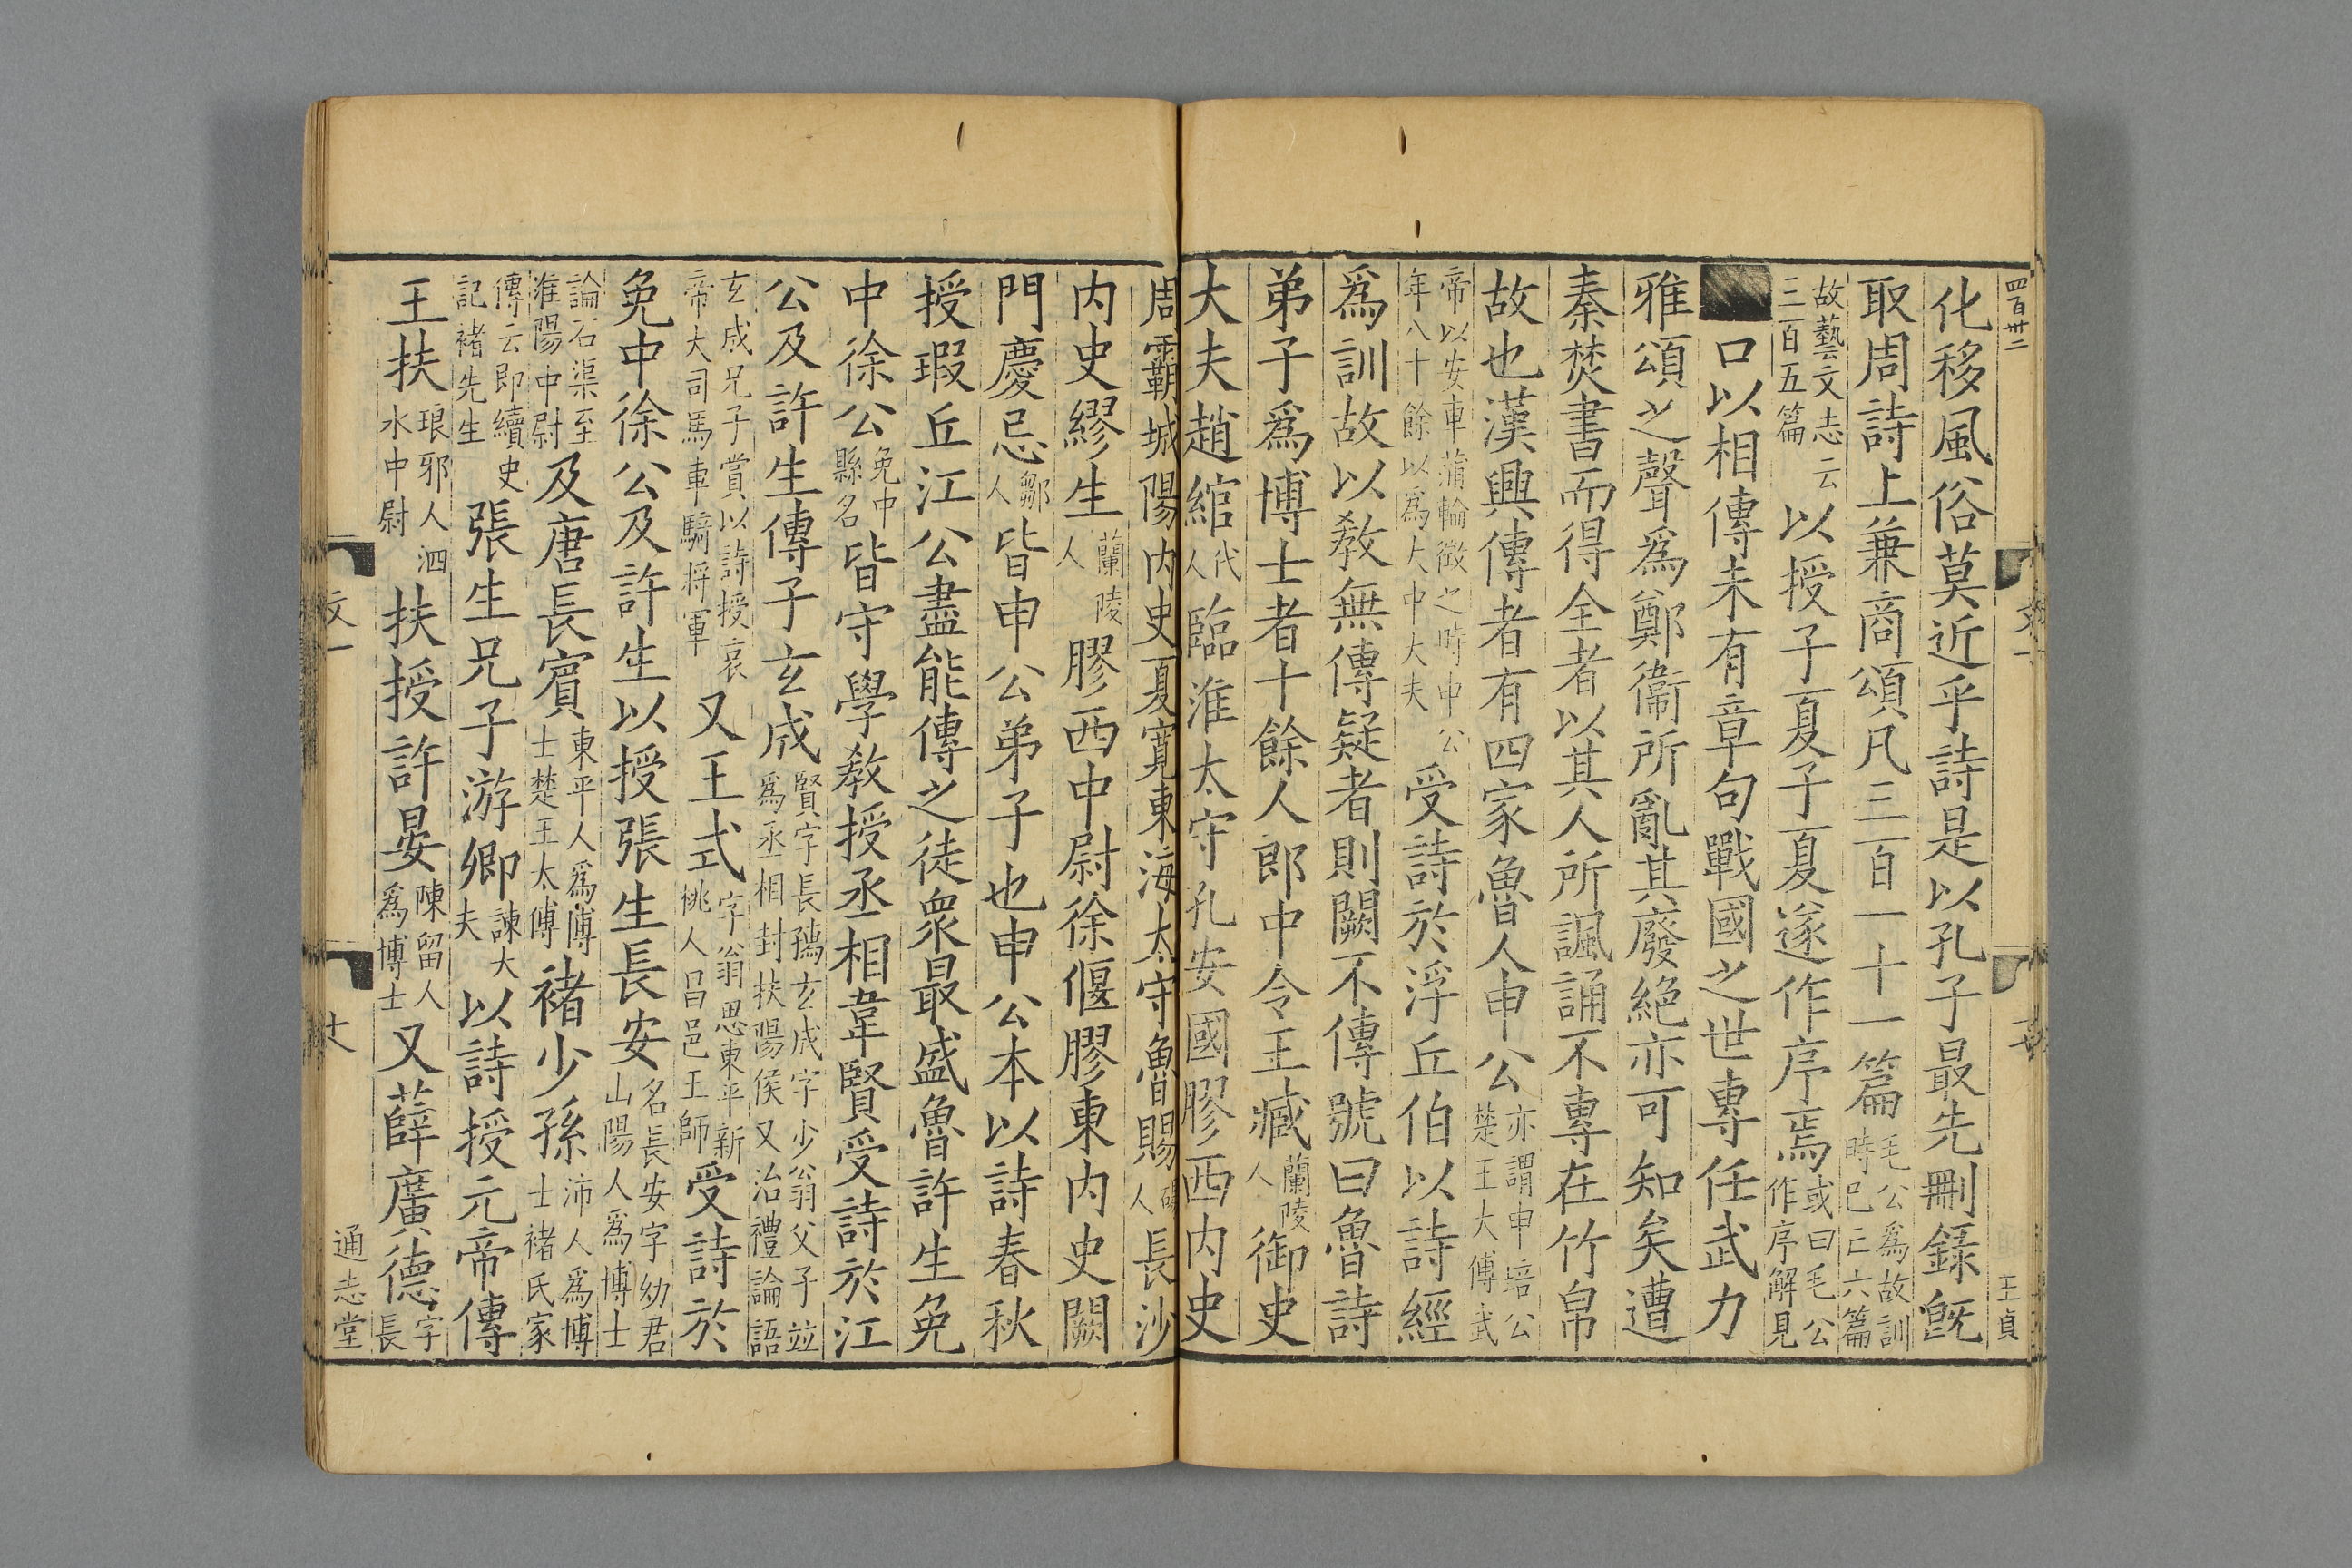 四百卅二
王貞
化移風俗莫近乎詩是以孔子最先刪錄旣
取周詩上兼商頌凡三百一十一篇毛公爲故訓時已亡六篇
故藝文志云三百五篇以授子夏子夏遂作序焉或曰毛公作序解見
口以相傳未有章句戰國之世專任武力
雅頌之聲爲鄭衞所亂其廢絕亦可知矣遭
秦焚書而得全者以其人所諷誦不專在竹帛
故也漢興傳者有四家魯人申公亦謂申培公楚王大傅武
帝以安車蒲輪徵之時申公年八十餘以爲大中大夫受詩於浮丘伯以詩經
爲訓故以敎無傳疑者則闕不傳號曰魯詩
弟子爲博士者十餘人郎中令王臧蘭陵人御史
大夫趙綰代人臨淮太守孔安國膠西內史
周霸城陽內史夏寬東海太守魯賜碭人長沙
內史繆生蘭陵人膠西中尉徐偃膠東內史闕
門慶忌鄒人皆申公弟子也申公本以詩春秋
授瑕丘江公盡能傳之徒衆最盛魯許生免
中徐公免中縣名皆守學敎授丞相韋賢受詩於江
公及許生傳子玄成賢字長孺玄成字少翁父子竝爲丞相封扶陽侯又治禮論語
玄成兄子賞以詩授哀帝大司馬車騎將軍又王式字翁思東平新桃人昌邑王師受詩於
免中徐公及許生以授張生長安名長安字幼君山陽人爲博士
論石渠至淮陽中尉及唐長賓東平人爲博士楚王太傅褚少孫沛人爲博士褚氏家
傳云卽續史記褚先生張生兄子游卿諫大夫以詩授元帝傳
王扶琅邪人泗水中尉扶授許晏陳留人爲博士又薛廣德字長
文一
七
通志堂